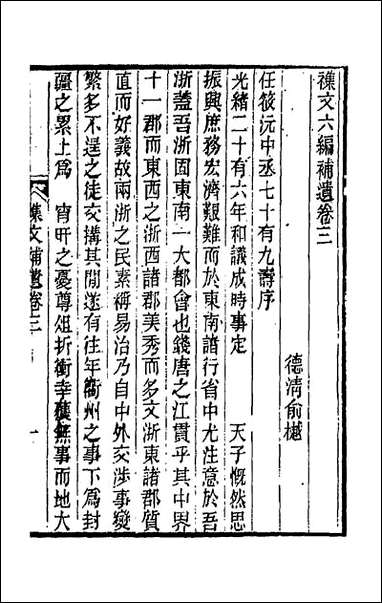 襍文六編補遺卷三
德清俞樾
任筱沅中丞七十有九壽序
光緒二十有六年和議成時事定　天子慨然思
振興庶務宏濟艱難而於東南諸行省中尤注意於吾
浙蓋吾浙固東南一大都會也錢唐之江貫乎其中界
十一郡而東西之浙西諸郡美秀而多文浙東諸郡質
直而好義故兩浙之民素稱易治乃自中外交涉事變
繁多不逞之徒交搆其閒遂有往年衢州之事下爲封
疆之累上爲　宵旰之憂尊俎折衝幸穫無事而地大
襍文補遺卷三
一